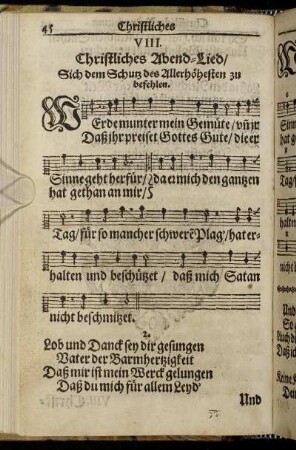 45
Christliches
VIII.
Christliches Abend-Lied/
Sich dem Schutz des Allerhöhesten zu
befehlen.
WErde munter mein Gemüte/ uñ jr
Daß ihr preiset Gottes Gute/ die er
Sinne geht herfür/ da er mich den gantzen
hat gethan an mir/
Tag/ für so mancher schwerẽ Plag/ hat er-
halten und beschützet/ daß mich Satan
nicht beschmitzet.
2.
Lob und Danck sey dir gesungen
Vater der Barmhertzigkeit
Daß mir ist mein Werck gelungen
Daß du mich für allem Leyd
Und